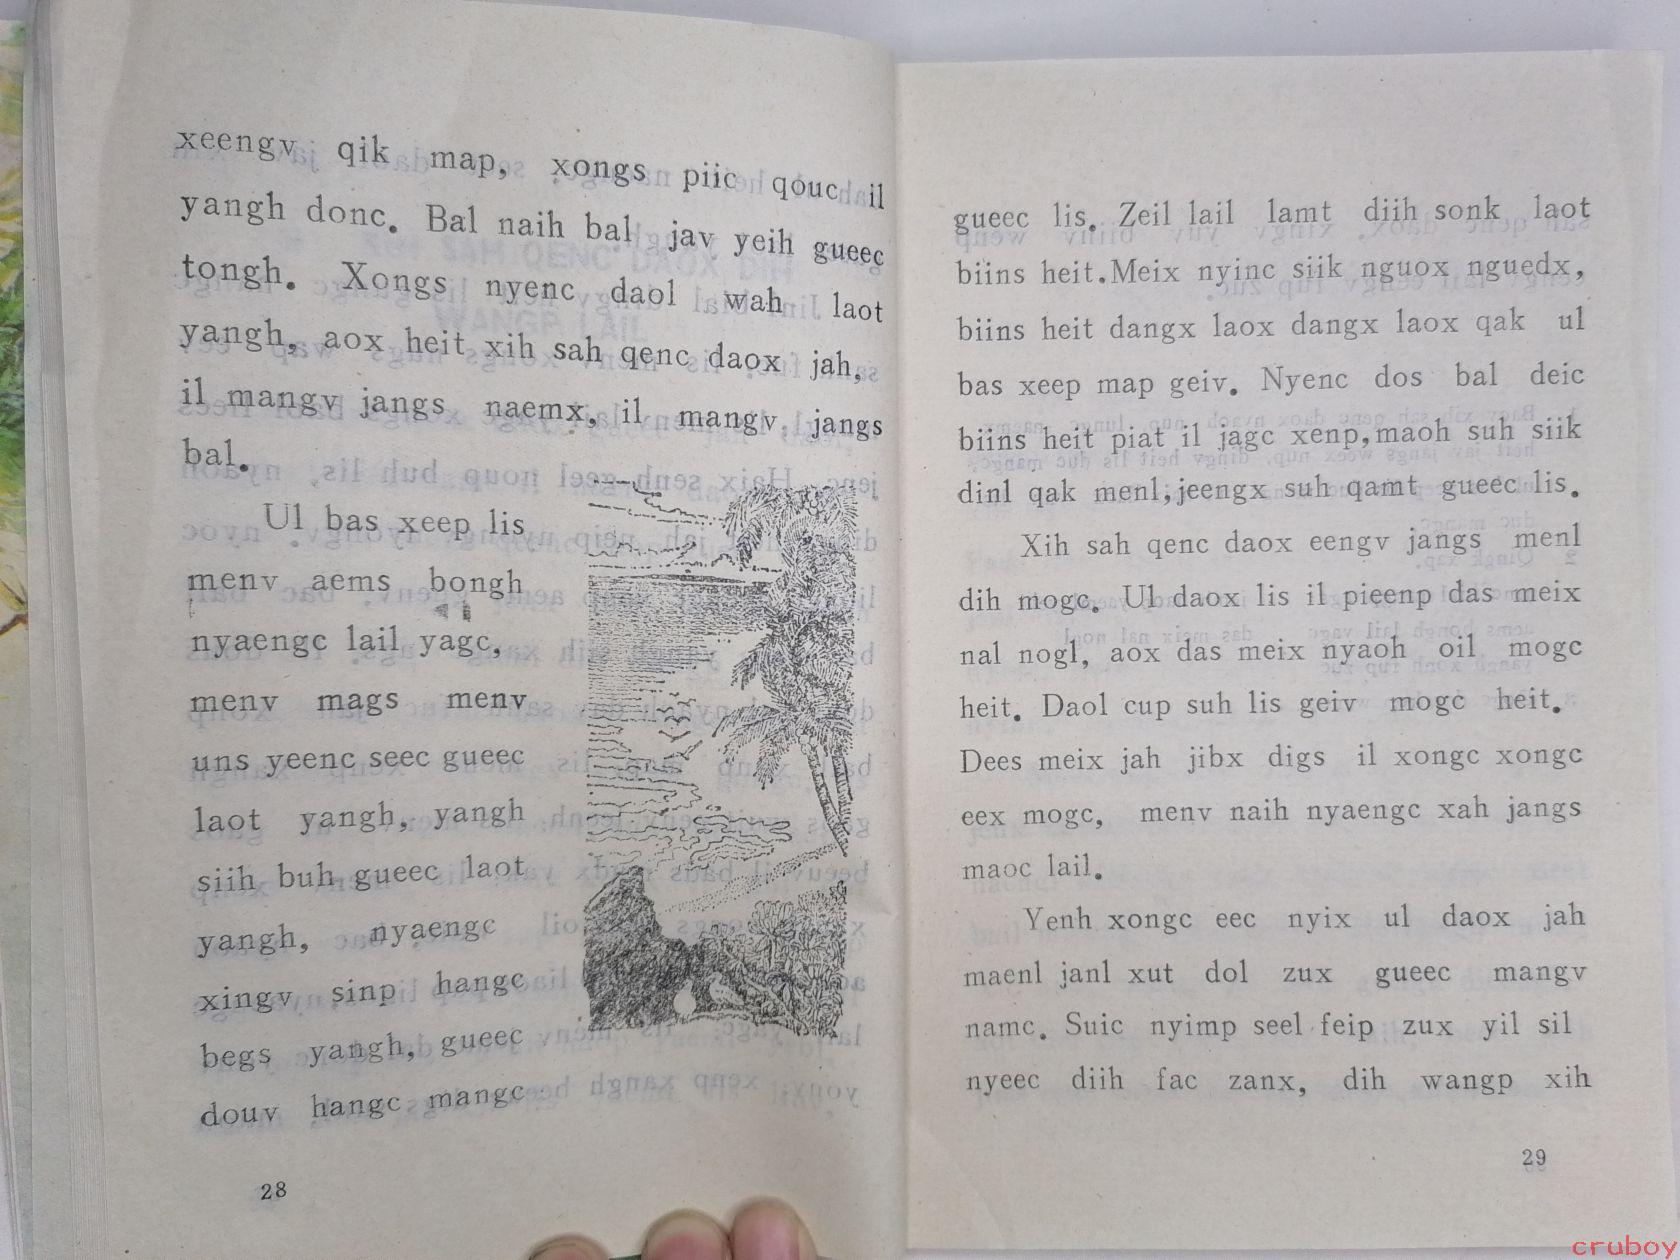 xeengv qik map, xongs piic qouc il
yangh donc. Bal naih bal jav yeih gueec
tongh. Xongs nyenc daol wah laot
yangh, aox heit xih sah qenc daox jah,
il mangv jangs naemx, il mangv jangs
bal.
Ul bas xeep lis
menv aems bongh
nyaengc lail yagc,
menv mags menv
uns yeenc seec gueec
laot yangh, yangh
siih buh gueec laot
yangh, nyaengc
xingv sinp hangc
begs yangh, gueec
douv hangc mangc
28
gueec lis. Zeil lail lamt diih sonk laot
biins heit. Meix nyinc siik nguox nguedx,
biins heit dangx laox dangx laox qak ul
bas xeep map geiv. Nyenc dos bal deic
biins heit piat il jagc xenp, maoh suh siik
dinl qak menl, jeengx suh qamt gueec lis.
Xih sah qenc daox eengv jangs menl
dih mogc. Ul daox lis il pieenp das meix
nal nogl, aox das meix nyaoh oil mogc
heit. Daol cup suh lis geiv mogc heit.
Dees meix jah jibx digs il xongc xongc
eex mogc, menv naih nyaengc xah jangs
maoc lail.
Yenh xongc eec nyix ul daox jah
maenl janl xut dol zux gueec mangv
namc. Suic nyimp seel feip zux yil sil
nyeec diih fac zanx, dih wangp xih
29
cruboy